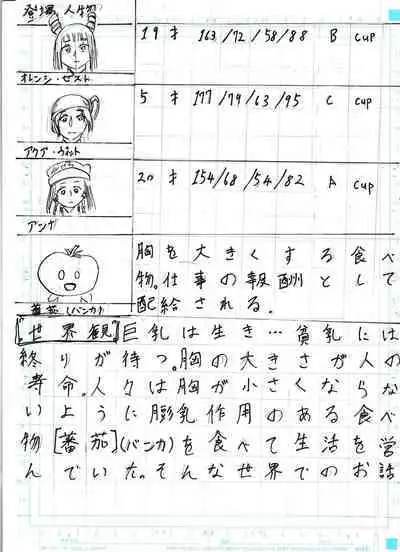 登場人物
19才 163/72/58/88 B cup
オレンジ・ゼスト
5才 177/79/63/95 C cup
アクア・
20才 154/68/54/82 A cup
アンナ
胸を大きくする食べ
物。仕事の報酬として
配給される。
蕃茄(バンカ)
[世界観]巨乳は生き…貧乳には
終りが待つ。胸の大きさが人の
寿命。人々は胸が小さくならな
いように膨乳作用のある食べ
物[蕃茄](バンカ)を食べて生活を営
んでいた。そんな世界でのお話